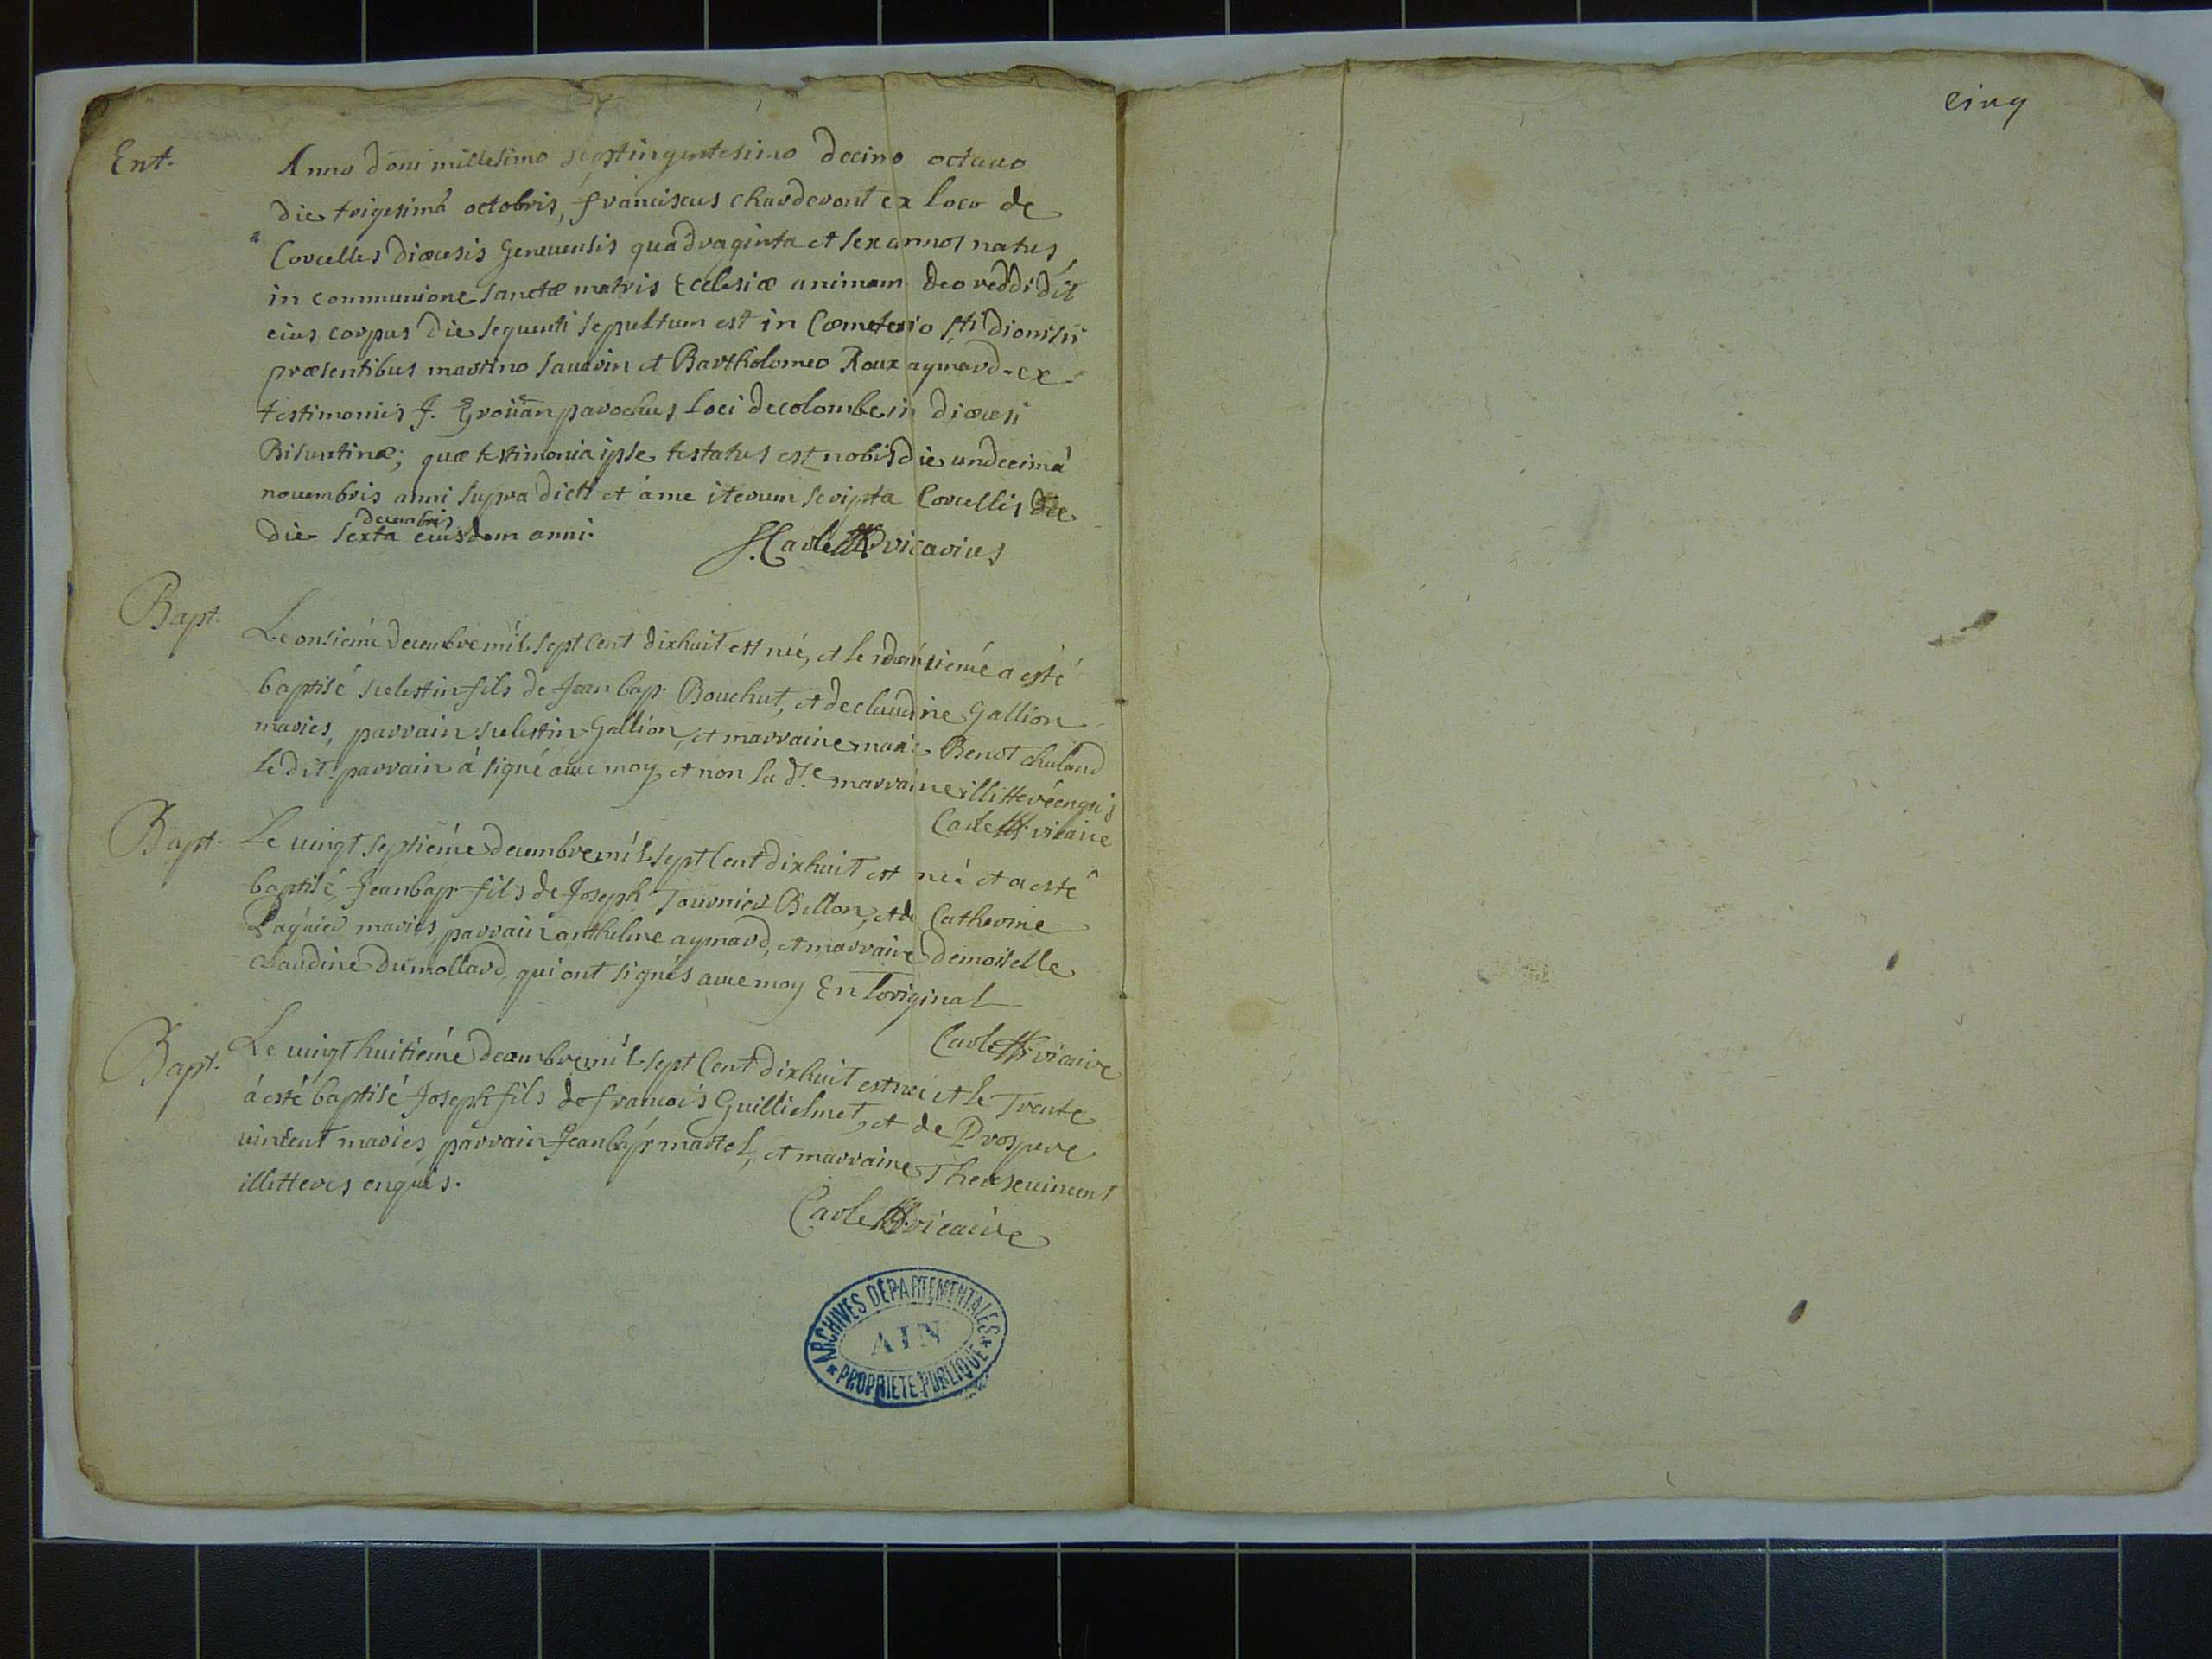 cinq
Ent. Anno doni millesimo septingentesimo decimo octavo
die trigesimâ octobris, franciscus charderont ex loco de
Corcelles diœcesis Genevensis quadraginta et sex annos natus
in communione sanctæ matris Ecclesiæ animam deo reddidit
eius corpus die sequenti sepultum est in Cœmeterio sti dionisii
præsentibus martino saudrin et Bartholomeo Roux aymard ex
testimoniis J. parochus loci de colombe in diœcesi
Bisuntinæ; quæ testimonia ipse testatus est nobis die undecimâ
novembris anni supra dicti et à me iterum scripta Corcellis die
decembris
die sexta eiusdem anni. Carle vicarius
Bapt. Le onsieme decembre mil sept cent dixhuit est né, et le dousieme a esté
baptisé selestin fils de Jean bap. Bouchut, et de claudine Gallion
maries, parrain selestin Gallion, et marraine marie Benot chaland
le dit parrain à signé avec moy, et non la d.te marraine illitteré enquis
Carle vicaire
Bapt. Le vingt septiême decembre mil sept cent dixhuit est né et a esté
baptisé, Jean bap. fils de Joseph Tournier Billon, et de Catherine
Paquier maries, parrain anthelme aymard, et marraine demoiselle
claudine Dumollard, qui ont signés avec moy En loriginal
Carle vicaire
Bapt. Le vingt huitiême decembre mil sept cent dixhuit est né et le Trente
à esté baptisé Joseph fils de francois Guillielmet, et de Prospere
vincent maries parrain Jean bap. martel, et marraine Therese vincent
illitteres enquis.
Carle vicaire
ARCHIVES DEPARTEMENTALES
AIN
* PROPRIETE PUBLIQUE *